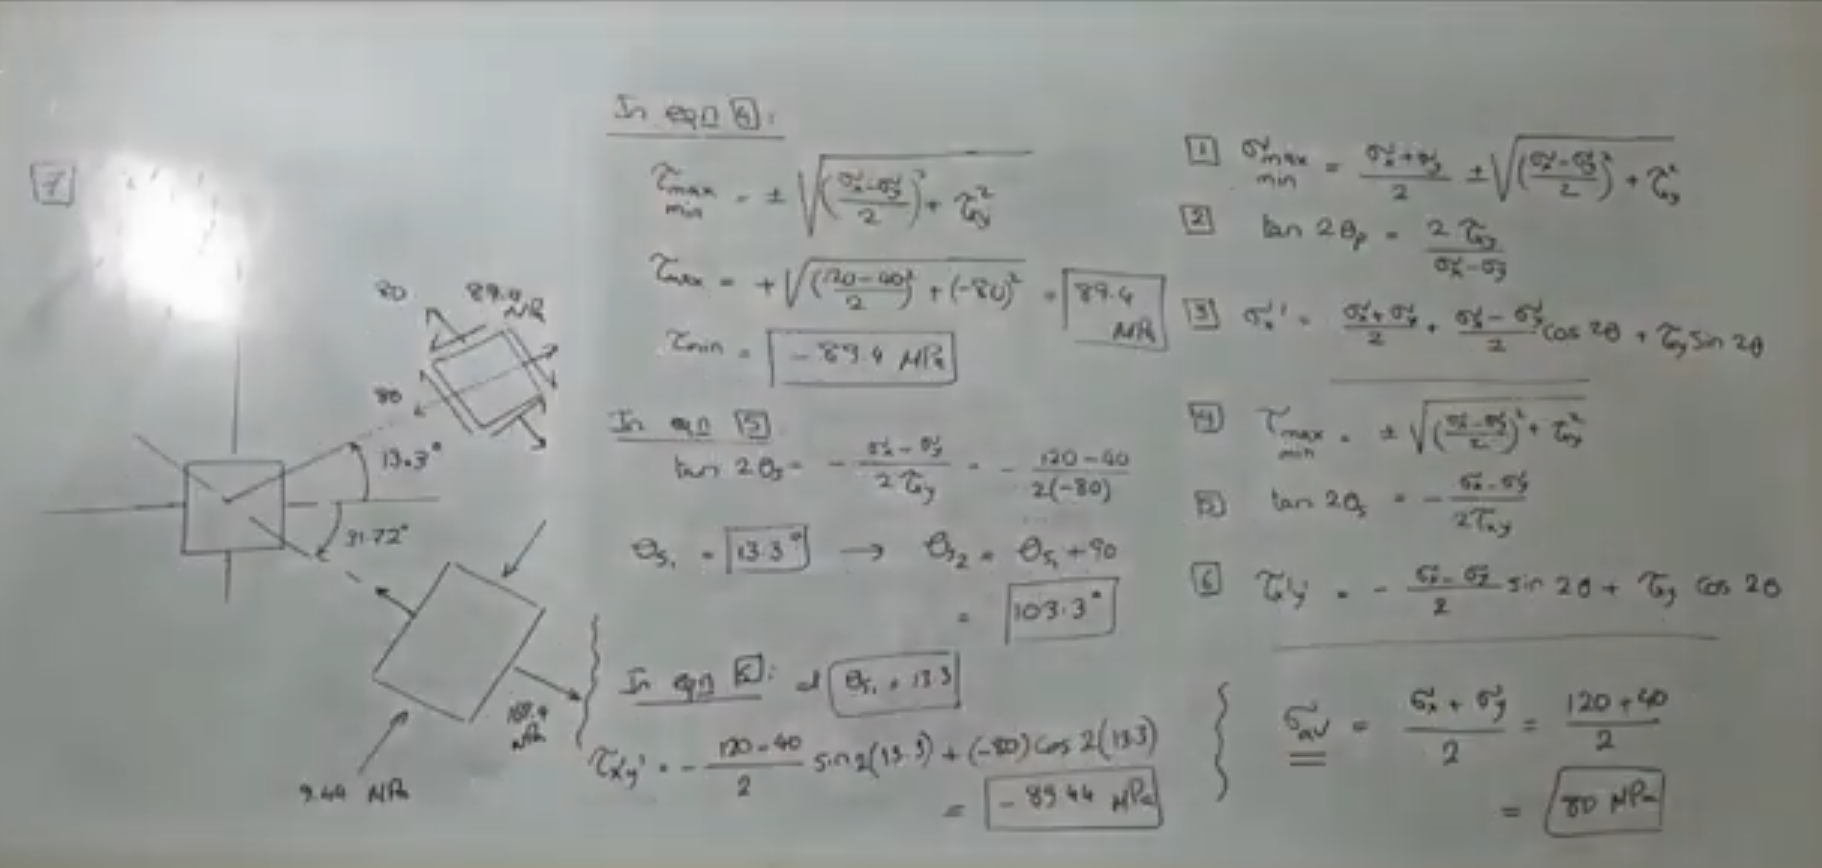 7
80
89.4 MPa
80
13.3°
31.72°
169.4 MPa
9.44 MPa
In eqn 4:
τmax min = ± √((σx-σy)/2)² + τxy²
τmax = + √((120-40)/2)² + (-80)² = 89.4 MPa
τmin = -89.4 MPa
In eqn 5
tan 2θs = - (σx-σy)/(2τxy) = - (120-40)/(2(-80))
θs₁ = 13.3° → θs₂ = θs₁ +90
= 103.3°
In eqn 6: at θs₁ = 13.3
τx'y' = - (120-40)/2 sin 2(13.3) + (-80) cos 2(13.3)
= -89.44 MPa
1 σmax min = (σx+σy)/2 ± √((σx-σy)/2)² + τxy²
2 tan 2θp = 2τxy/(σx-σy)
3 σx' = (σx+σy)/2 + (σx-σy)/2 cos 2θ + τxy sin 2θ
4 τmax min = ± √((σx-σy)/2)² + τxy²
5 tan 2θs = - (σx-σy)/(2τxy)
6 τx'y' = - (σx-σy)/2 sin 2θ + τxy cos 2θ
σav = (σx+σy)/2 = (120+40)/2
= 80 MPa